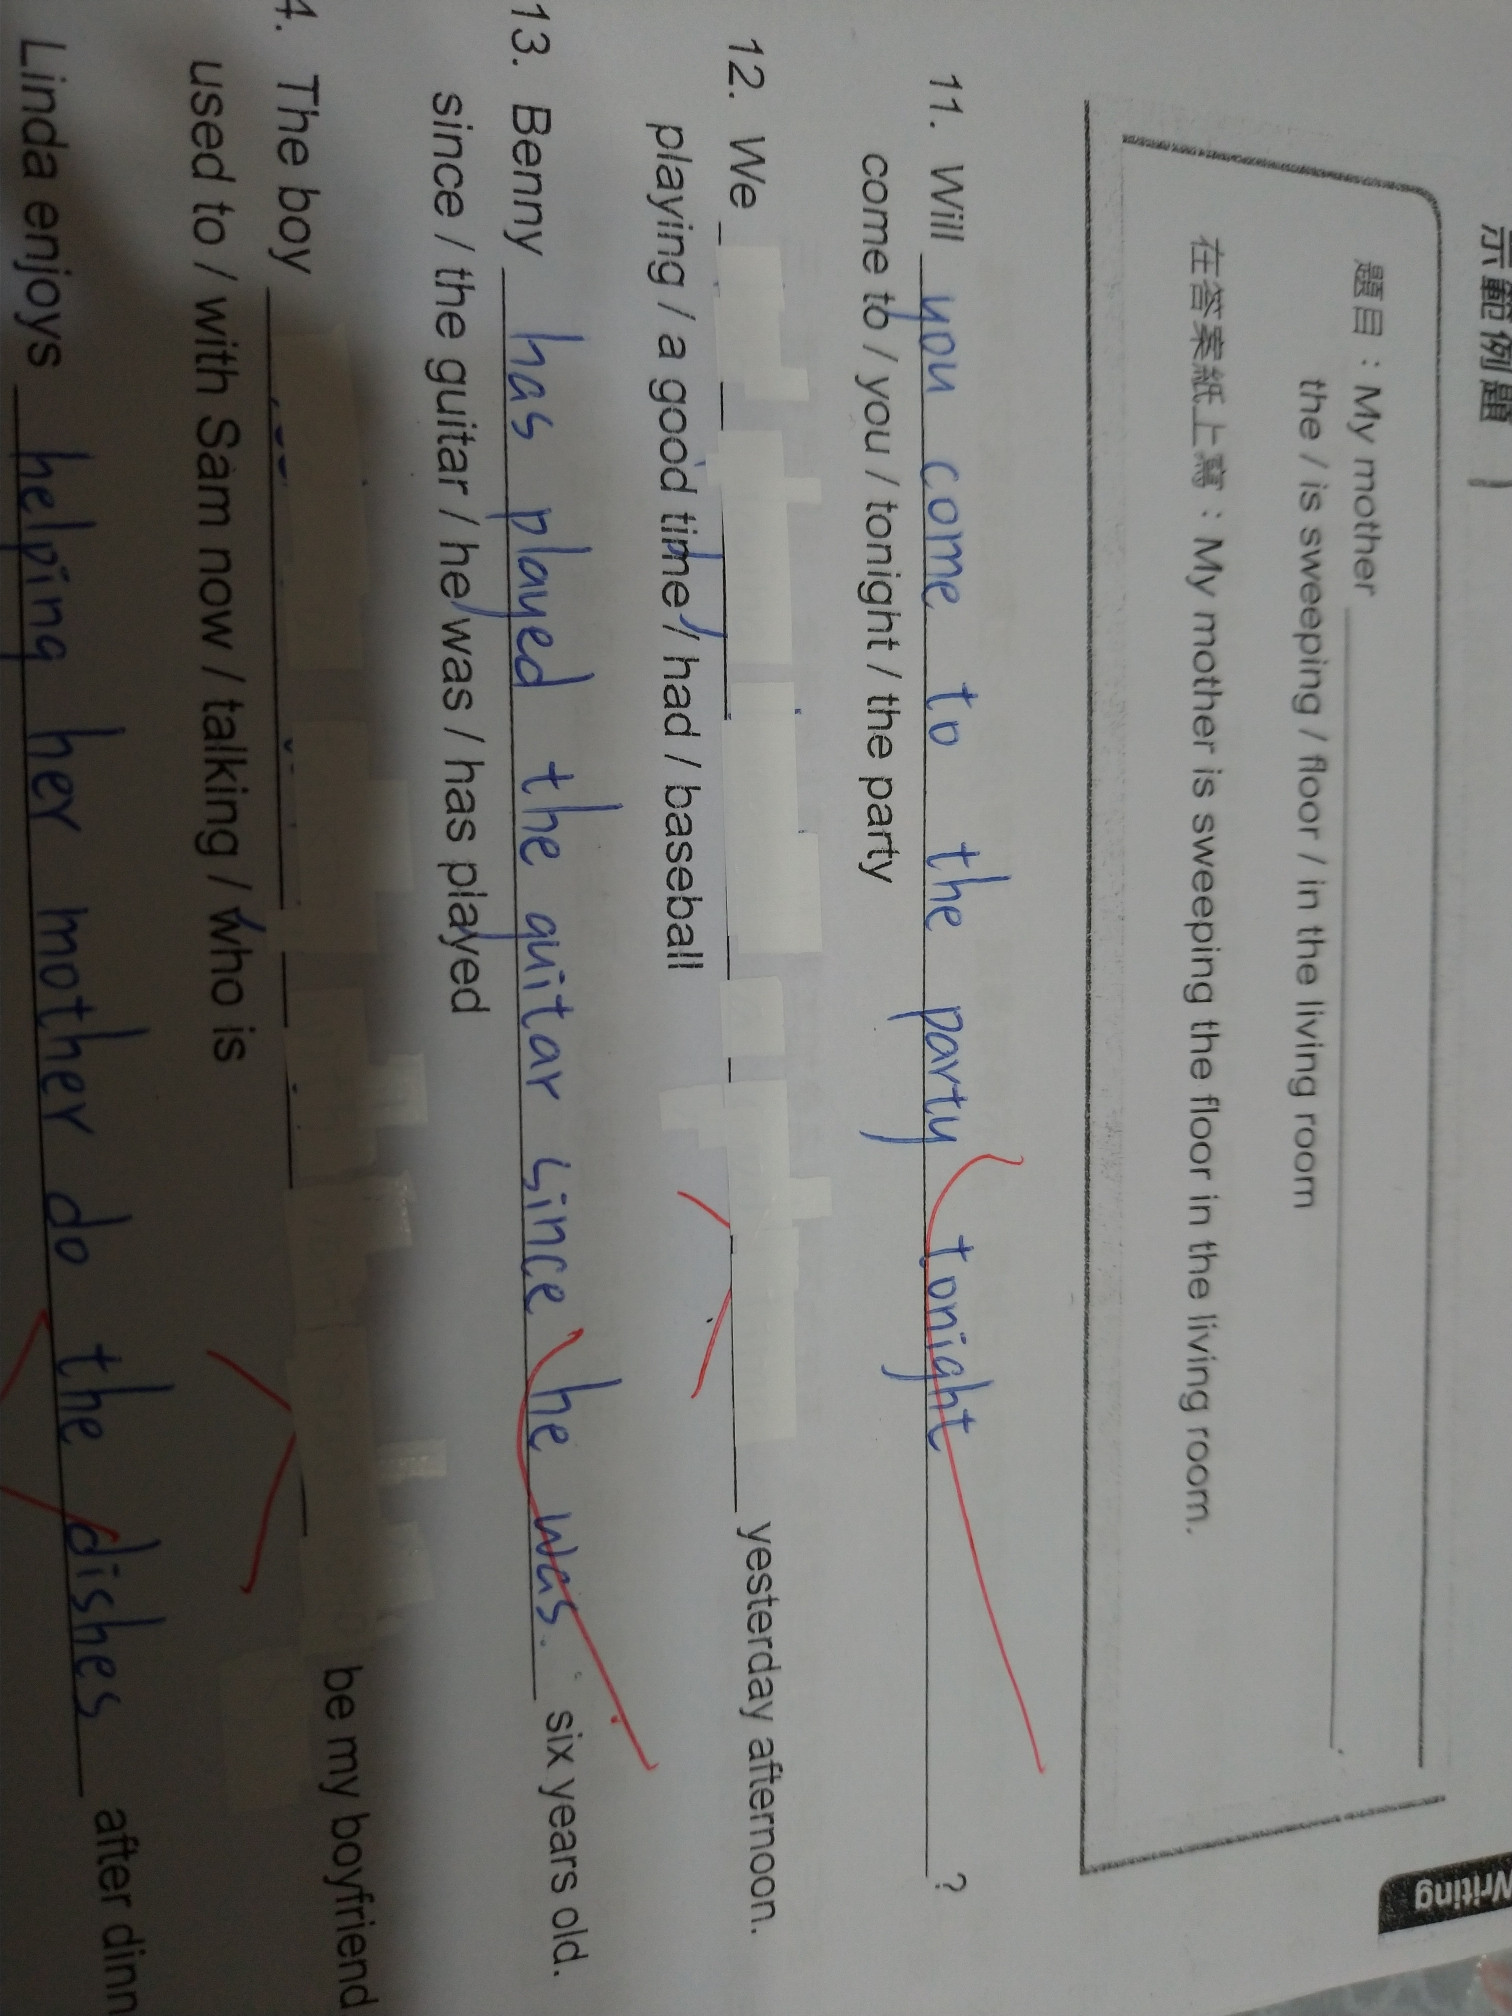 示範例題
Writing
題目：My mother
the / is sweeping / floor / in the living room
在答案紙上寫：My mother is sweeping the floor in the living room.
11. Will you come to the party tonight ?
come to / you / tonight / the party
12. We yesterday afternoon.
playing / a good time / had / baseball
13. Benny has played the guitar since he was. six years old.
since / the guitar / he was / has played
4. The boy be my boyfriend
used to / with Sam now / talking / who is
Linda enjoys helping her mother do the dishes after dinn